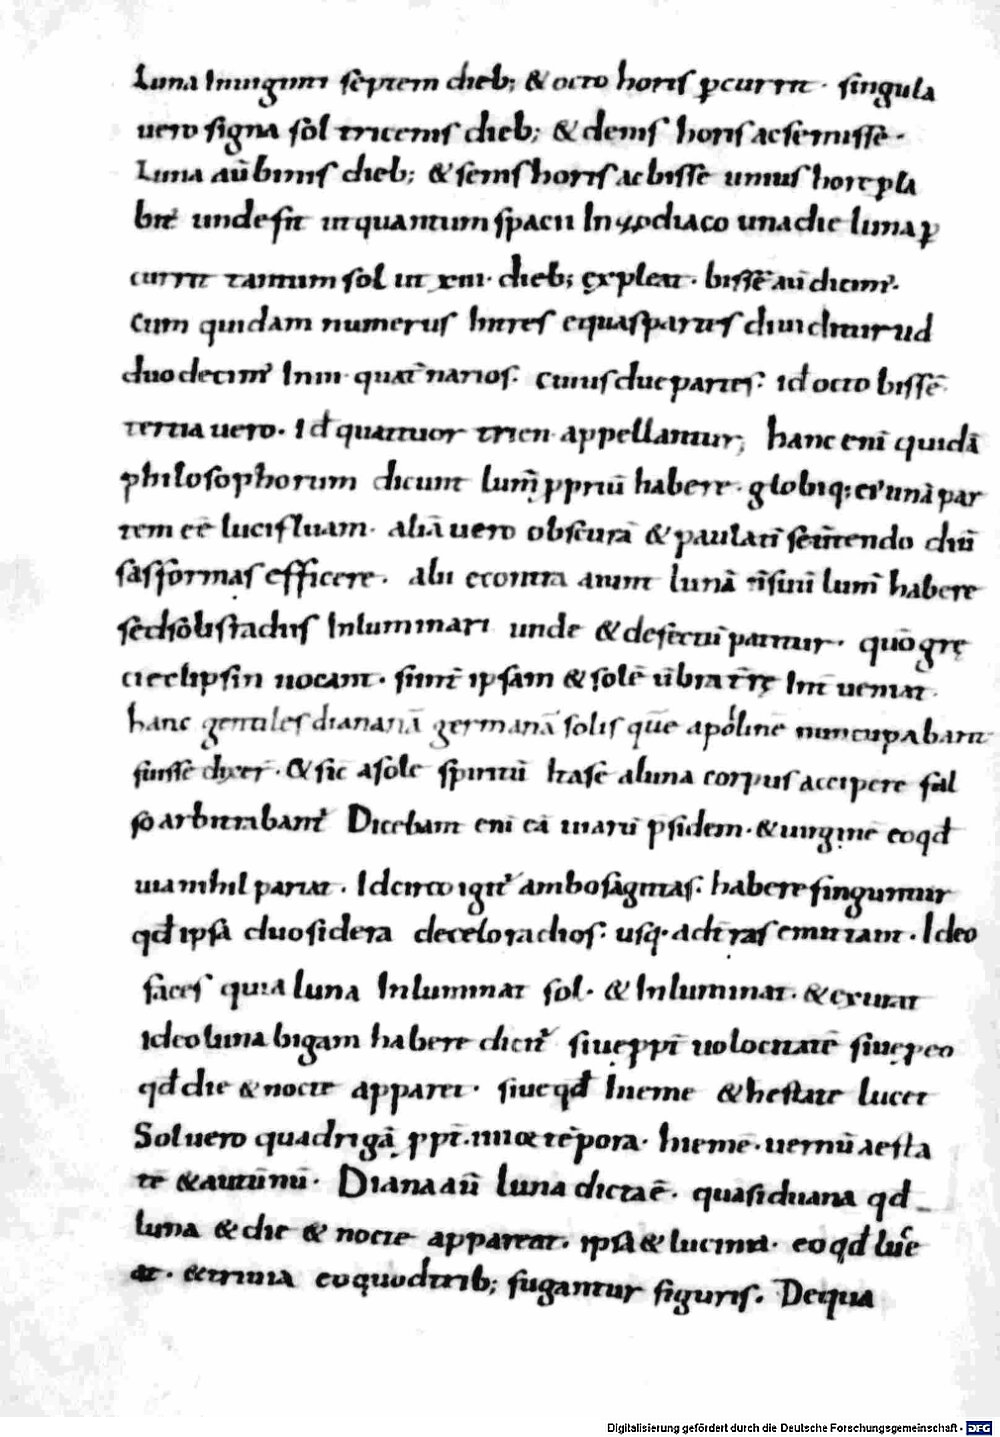 Luna In uiginti septem dieb; & octo horis ꝑcurrit · singula
uero signa sol tricenis dieb; & denis horis ac semisse ·
Luna aū binis dieb; & senis horis ac bisse unius hore
unde fit in quantum spacii In zodiaco una die luna ꝑ
currit tantum sol in xiii · dieb; expleat · bissē aū dicim᷒ ·
Cum quidam numerus In tres equas partes diuiditur ud
duodecim In iii · quat̄narios · cuius due partes : id octo bissē
tertia uero · Id quattuor trien appellantur ; hanc eni quidā
philosophorum dicunt lum̄ ꝓpriū habere · globiq; ei᷒ unā par
tem eē lucifluam · aliā uero obscurā & paulatī se diū
sas formas efficere · alii econtra aiunt lunā n̄ suū lum̄ habere
sed solis radiis Inluminari unde & defectū patitur · quō gr̨e
ci eclipsin uocant · si int̄ ipsam & solē ūbra t̄rę Int̄ueniat ·
hanc gentiles dianā germanā solis quē apollinē nuncupabant
fuisse dixer̄ · & sic a sole spiritū hase a luna corpus accipere fal
so arbitrabant᷒ Dicebant eni eā uiarū p̄sidem · & uirginē eo qđ
uia nihil pariat · Idcirco igit᷒ ambo sagittas : habere finguntur
qđ ipsa duo sidera de celo radios : usq · ad t̄ras emittant · Ideo
faces quia luna Inluminat sol · & Inluminat · & exurat
Ideo luna bigam habere dicit᷒ siue ꝓpt̄ uelocitatē siue ꝓ eo
qđ die & nocte apparet · siue qđ hieme & hestate lucet
Sol uero quadrigā ꝓpt̄ · iiii or tēpora · hiemē · uernū aesta
tē & autūnū · Diana aū luna dicta ē · quasi duana qđ
luna & die & nocte appareat · ipsā & lucina · eo qđ luce
at · & triuia eo quod trib; fugantur figuris · De qua
Digitalisierung gefördert durch die Deutsche Forschungsgemeinschaft - DFG